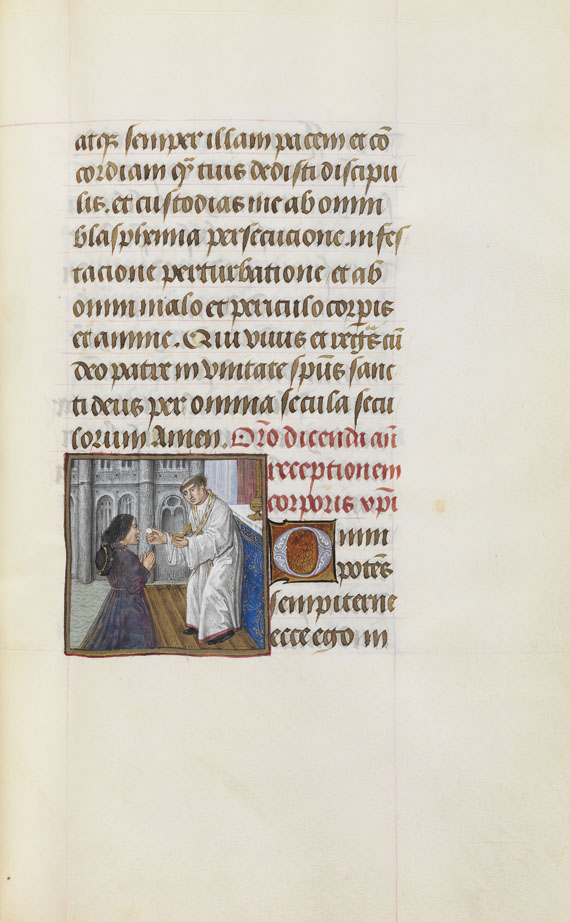 atq₃ semper illam pacem et cō
cordiam q̄ tuis dedisti discipu
lis. et custodias me ab omni
blasphemia persecucione. infes
tacione perturbatione et ab
omni malo et periculo corpis
et anime. Qui viuis et regs cū
deo patre in vnitate spūs sanc
ti deus per omnia secula secu
lorum Amen. Orō dicenda an̄
rxceptionem
corporis xp̄i
Omni
potēs
sempiterne
ecce ego in